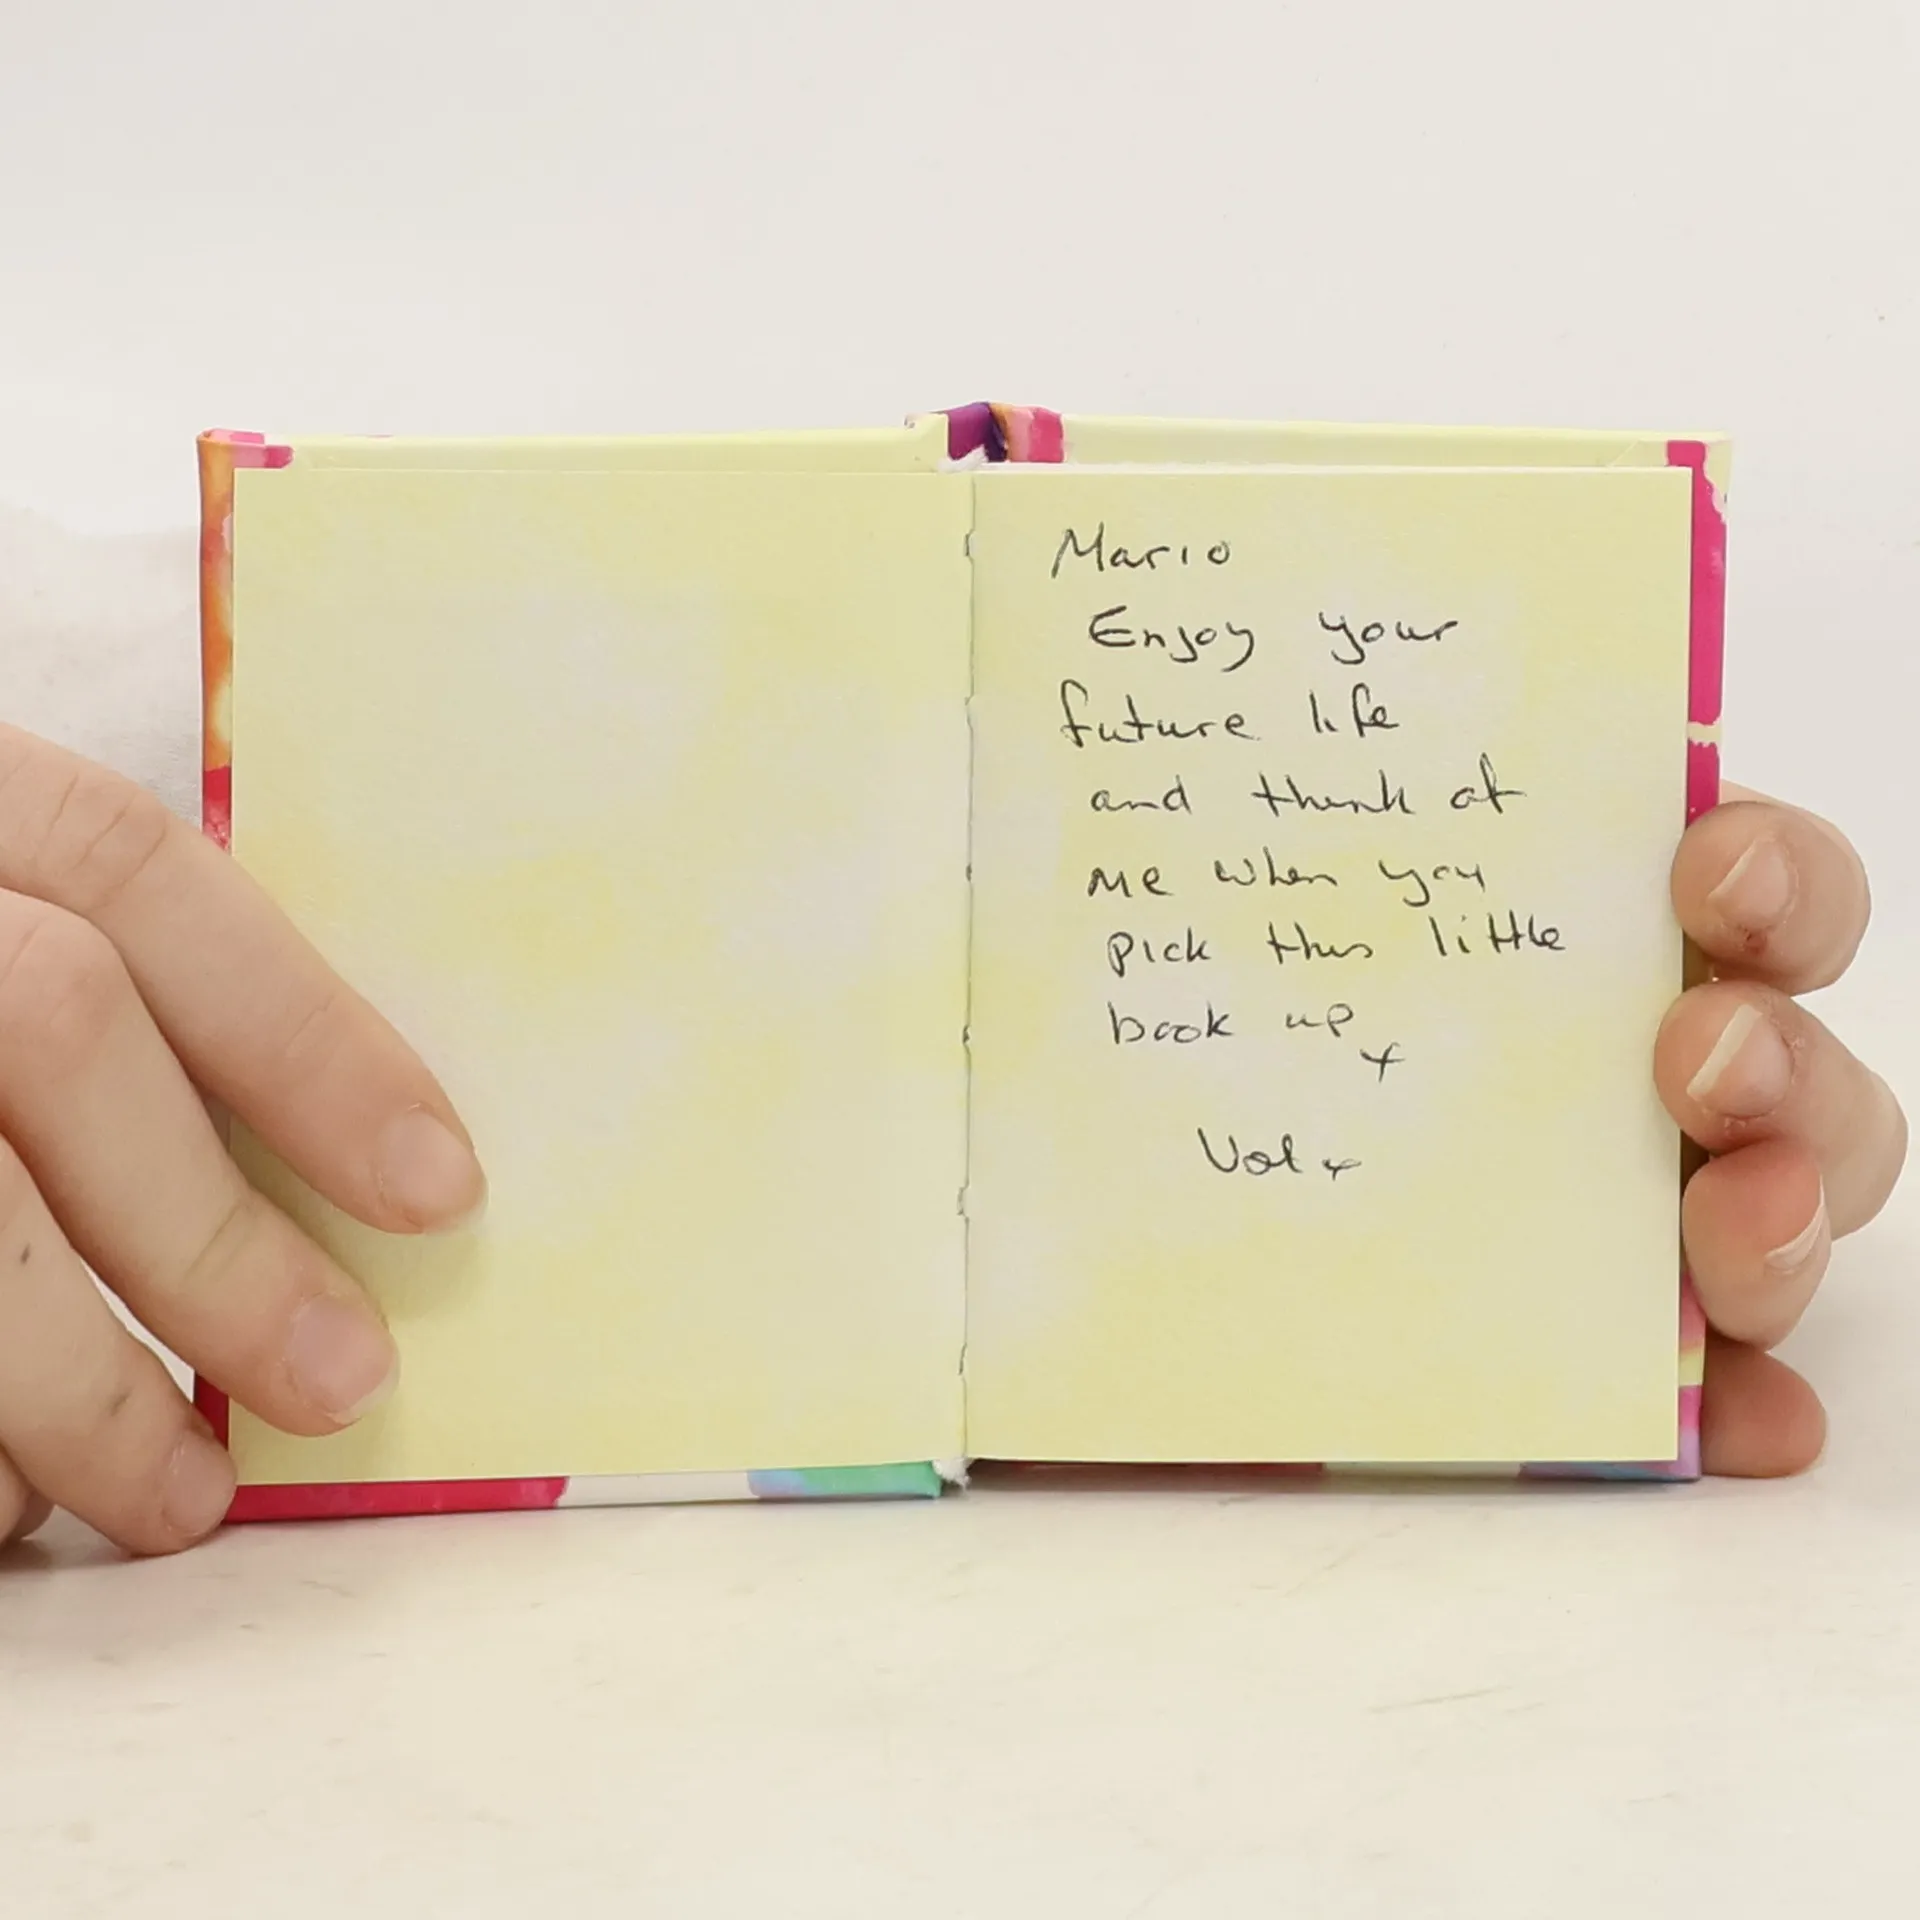 Mario
Enjoy your
future life
and think of
me when you
pick this little
book up
x
Val x